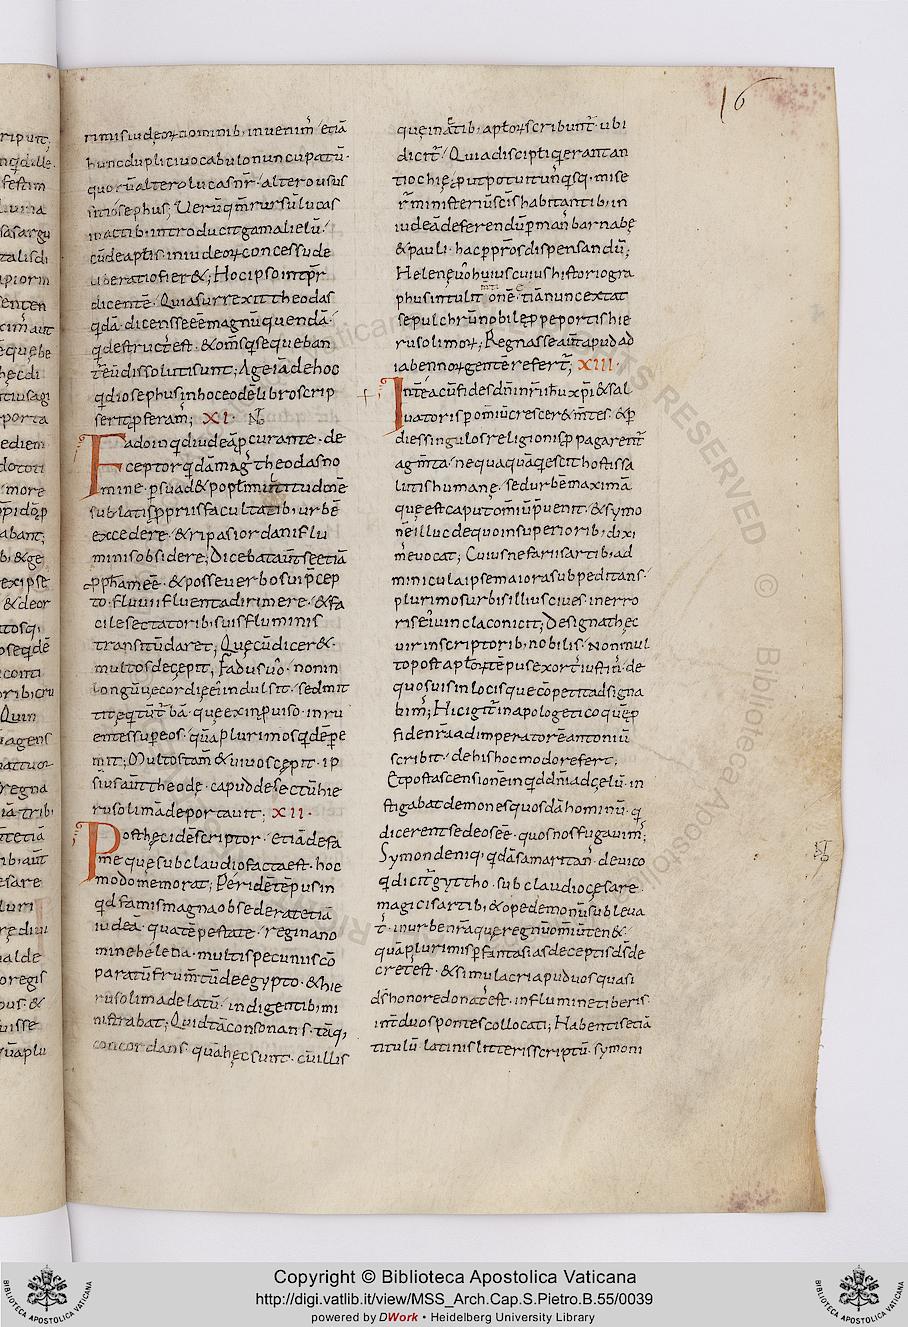 16
rimis iudeoꝝ ciominib; inuenim̄ / etiā
hunc duplici uocabulo nuncupatū·
quorū altero lucas nr̄ / altero usus
iosephus; Uerū qm̄ rursū lucas
in actib; introducit gamalielū·
cū de aptis in iudeoꝝ concessu de
liberatio fier&; Hoc ipso intpr̄
dicente· Quia surrexit theodas
qdā· dicens se eē magnū quendā·
q destruct; est· & om̄s q sequeban
t̄ eū dissoluti sunt; Age iā de hoc
qd iosephus in hoc eodē libro scrip
serit pferam̄; XI·
Fado inqd iudeā pcurante· de
ceptor qdā mag; theodas no
mine· psuad& popli multitudinē
sublatis ppriis facultatib; urbē
excedere· & ripas iordanis flu
minis obsidere; Dicebat aut̄ se etiā
pphetam eē· & posse uerbo sui pcep
to· fluuii fluenta dirimere· & fa
cile sectatorib; suis fluminis
transitū daret; Quecū dicer&·
multos decepit; Fadus uo· non in
longū uecordie ei indulsit· sed mit
tit equtū t̄bā· que ex inpuiso· inru
entes sup eos· quā plurimos qdē pe
mit; Multos tam̄ & uiuos cepit· ip
sius aut̄ theode· capud desectū hie
rusolima deportauit; XII·
Post hec idē scriptor· etiā de fa
me que sub claudio facta est· hoc
modo memorat; Per idē tēpus in
qd famis magna obsederat etiā
iudeā· qua tēpestate· regina no
mine helena· multis pecuniis cō
paratū frumtū de egypto· & hie
rusolima delatū· indigentib; mi
nistrabat; Quid tā consonans· tāq;
concordans· quā hec sunt· cū illis
que in actib; aptoꝝ scribunt̄· ubi
dicit̄ / Quia discipli q erant an
tiochie· put potuit unqsq; mise
r̄ ministeriū scis habitantib; in
iudea deferendū p man; barnabe
& pauli· hac p pros dispensandū;
Helene uo huius cuius historiogra
phus intulit mtionē· & iā nunc extat
sepulchrū nobile p pe portis hie
rusolimoꝝ; Regnasse aut̄ apud ad
iabennoꝝ gente refert̄; XIII·
Intea cū fides dni nri ihu xpi & sal
uatoris p omiū cresceret mtes· & p
dies singulos religionis ppagaret̄
agmta· nequaquā qescit hostis sa
lutis humane· sed urbē maximā
que est caput omiū puenit· & symo
nē illuc de quo in superiorib; dixi
m; euocat; Cuius nefariis artib; ad
minicula ipse maiora subpeditans·
plurimos urbis illius ciues· in erro
ris eiuincla conicit; Designat hec
uir in scriptorib; nobilis· non mul
to post aptoꝝ tēpus exort; iustin;· de
quo suis in locis que cōpetit adsigna
bim; Hic igit̄ in apologetico quē p
fide nra ad imperatorē antoniū
scribit· de his hoc modo refert,
Et post ascensionē inqd dni ad celū· in
stigabat demones quosdā hominū· q
dicerent se deos eē· quos nos fugauim;
Symon deniq;· qdā samaritan;· de uico
q dicit̄ gyttho· sub claudio cesare·
magicis artib; & ope demonū subleua
t;· in urbe nra que regnū omiū ten&·
quā plurimis p fantasias deceptis d̄s de
cret; est· & simulacri apud uos quasi
d̄s honore donat; est· in flumine tiberis·
int̄ duos pontes collocati; Habentis etiā
titulū· latinis litteris scriptū· symoni
Copyright © Biblioteca Apostolica Vaticana
http://digi.vatlib.it/view/MSS_Arch.Cap.S.Pietro.B.55/0039
powered by DWork • Heidelberg University Library